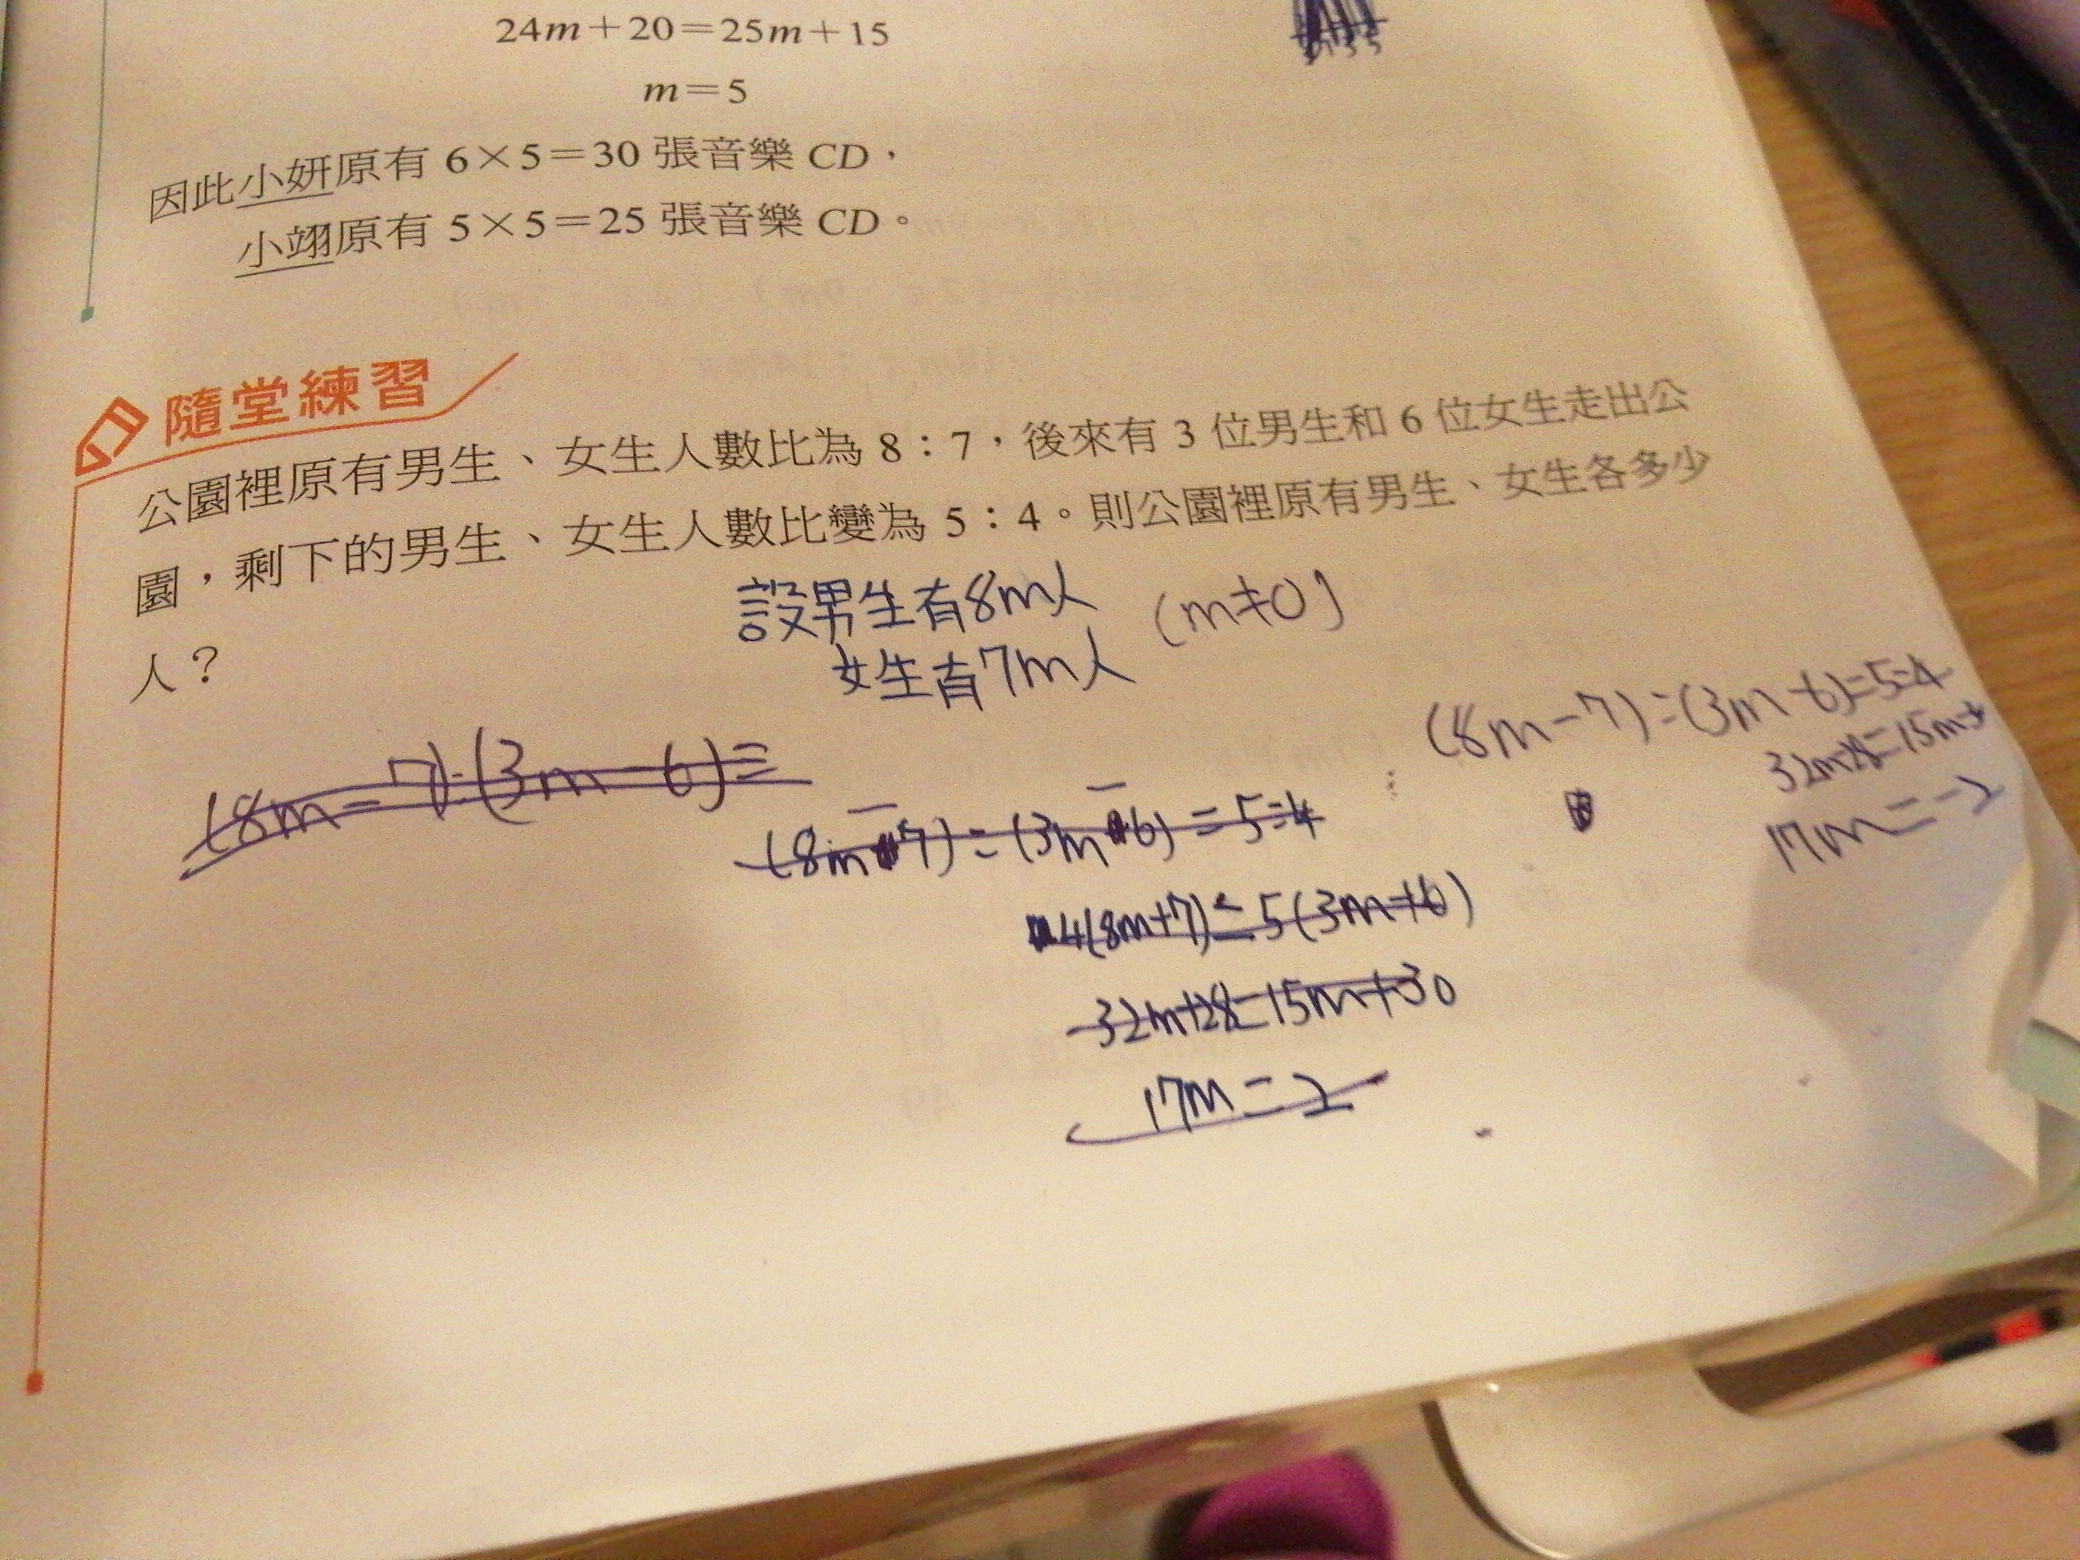 24m＋20＝25m＋15
m＝5
因此小妍原有 6×5＝30 張音樂 CD，
小翊原有 5×5＝25 張音樂 CD。
隨堂練習
公園裡原有男生、女生人數比為 8：7，後來有 3 位男生和 6 位女生走出公
園，剩下的男生、女生人數比變為 5：4。則公園裡原有男生、女生各多少
人？
設男生有8m人 (m≠0)
女生有7m人
(8m-7):(3m-6)=5:4
32m-28=15m
17m=-2
(8m-7):(3m-6)=
(8m-7):(3m-6)=5:4
4(8m+7)=5(3m+6)
32m+28=15m+30
17m=2